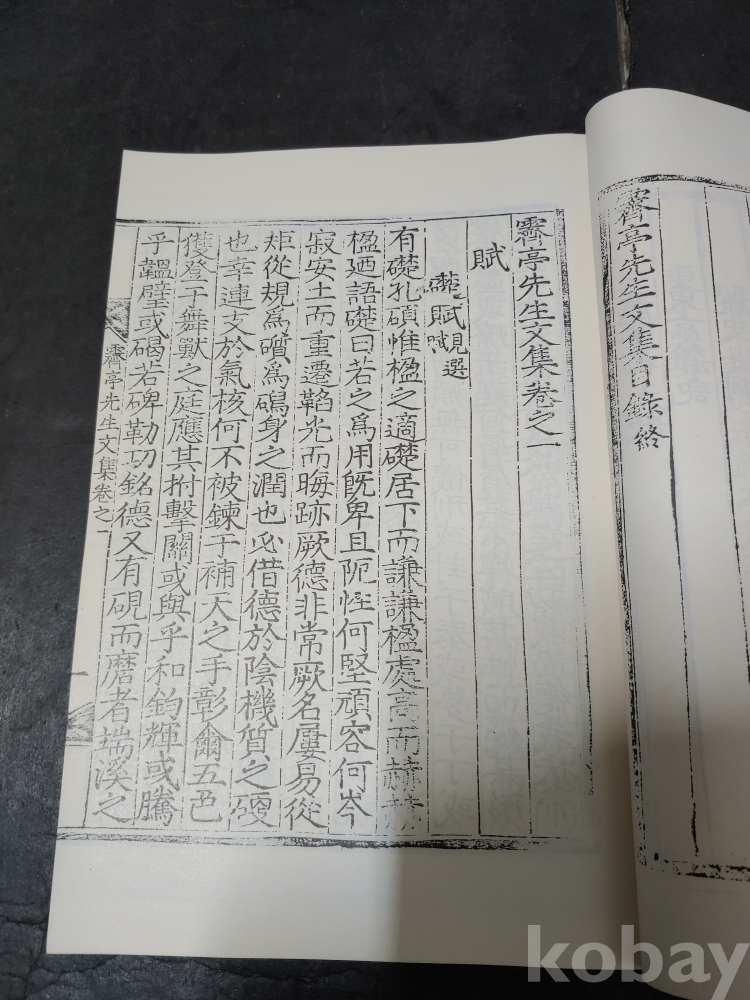 霽亭先生文集目錄終
霽亭先生文集卷之一
賦
礎賦覞選
有礎孔碩惟楹之適礎居下而謙謙楹處高而赫赫
楹廼語礎曰若之爲用旣卑且阨性何堅頑容何岑
寂安土而重遷鞱光而晦跡厥德非常厥名屢易從
矩從規爲礩爲磶身之潤也必借德於陰機質之
也幸連支於氣核何不被鍊于補天之手彰爾五色
獲登于舞獸之庭應其拊擊關或與乎和鈞輝或騰
乎韞璧或碣若碑勒功銘德又有硯而磨者端溪之
霽亭先生文集卷之一
一
kobay